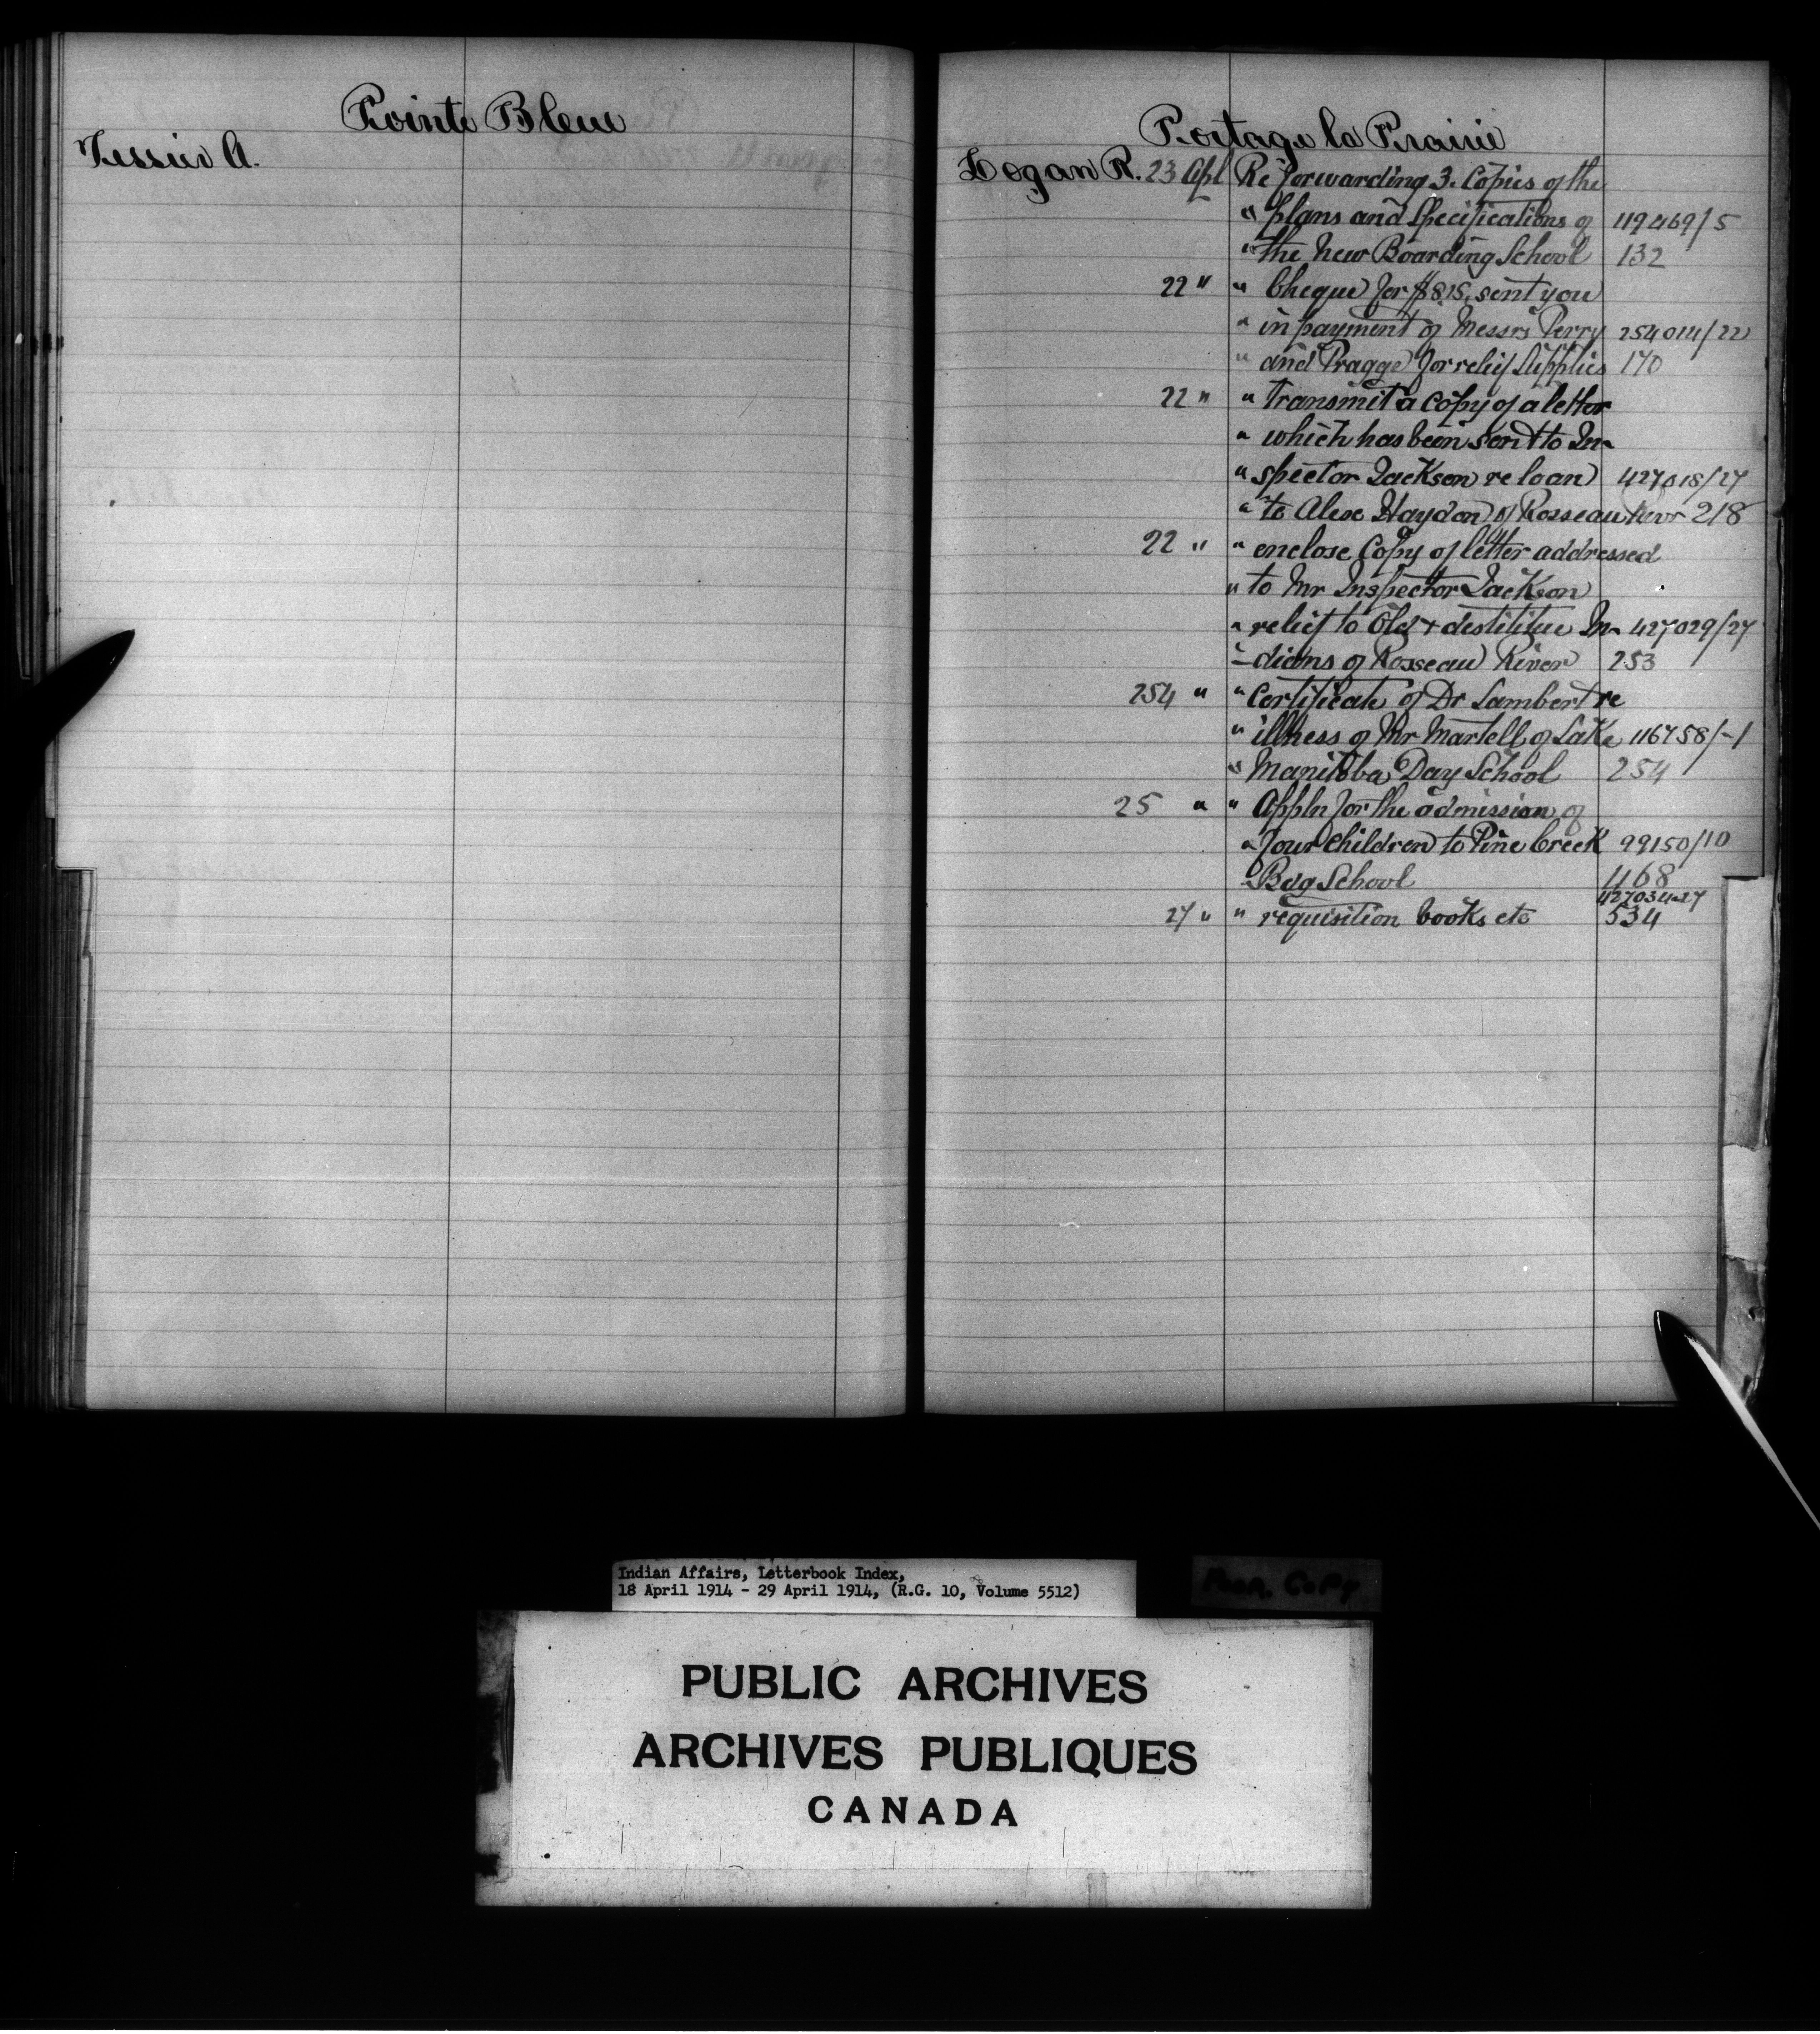 Pointe Bleue
Tessier A.
Portage la Prairie
Logan R. 23 Apl Re forwarding 3. Copies of the
" plans and Specifications of 119469/5
" the New Boarding School 132
22 " " Cheque for $815. sent you
" in payment of Messrs Perry 254014/22
" and Pragge for relief Supplies 170
22 " " transmit a copy of a letter
" which has been sent to In-
" spector Jackson re loan 427018/27
" to Alex Haydon of Rosseau River 218
22 " " enclose Copy of letter addressed
" to Mr Inspector Jackson
" relief to Old + destitute In- 427029/27
- dians of Rosseau River 253
254 " " Certificate of Dr Lambert re
" illness of Mr Martell of Lake 116758/-1
" Manitoba Day School 254
25 " " Appln for the admission of
" four children to Pine Creek 99150/10
Bdg School 468
427034-27
27 " " requisition books etc 534
Indian Affairs, Letterbook Index,
18 April 1914 - 29 April 1914, (R.G. 10, Volume 5512)
Copy
PUBLIC ARCHIVES
ARCHIVES PUBLIQUES
CANADA